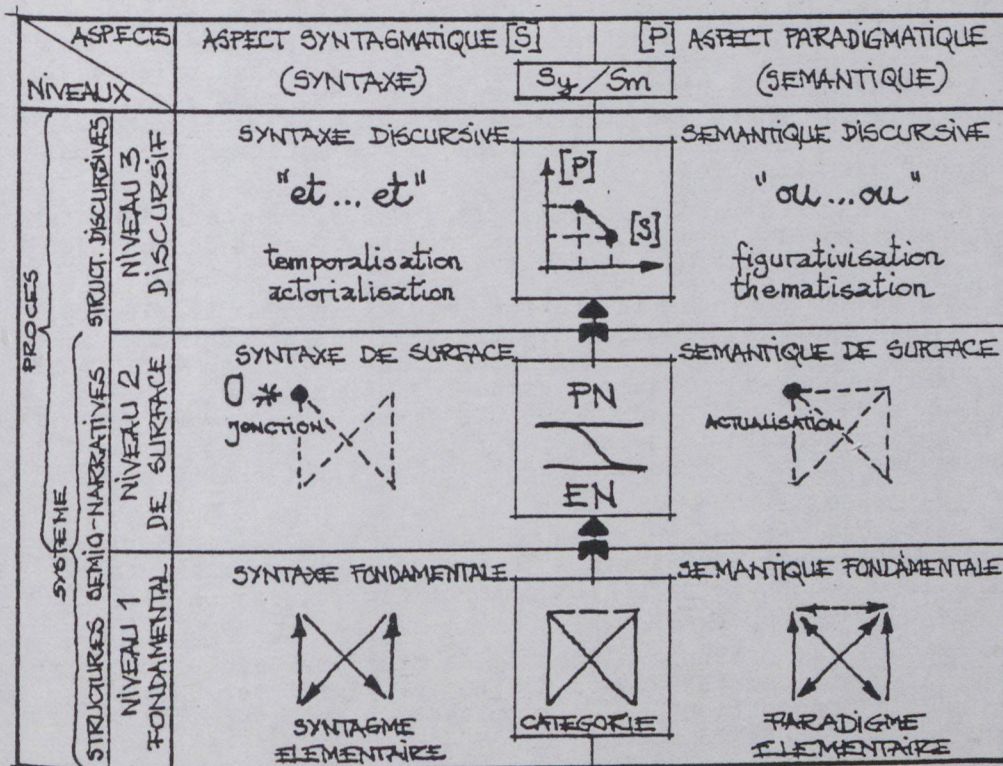 ASPECTS
NIVEAUX
ASPECT SYNTAGMATIQUE [S]
(SYNTAXE)
Sy/Sm
[P] ASPECT PARADIGMATIQUE
(SEMANTIQUE)
PROCES
SYSTEME
STRUCT. DISCURSIVES
NIVEAU 3
DISCURSIF
SYNTAXE DISCURSIVE
"et... et"
temporalisation
actorialisation
[P]
[S]
SEMANTIQUE DISCURSIVE
"ou...ou"
figurativisation
thematisation
STRUCTURES SEMIO-NARRATIVES
NIVEAU 2
DE SURFACE
SYNTAXE DE SURFACE
JONCTION
PN
EN
SEMANTIQUE DE SURFACE
ACTUALISATION
NIVEAU 1
FONDAMENTAL
SYNTAXE FONDAMENTALE
SYNTAGME
ELEMENTAIRE
CATEGORIE
SEMANTIQUE FONDAMENTALE
PARADIGME
ELEMENTAIRE